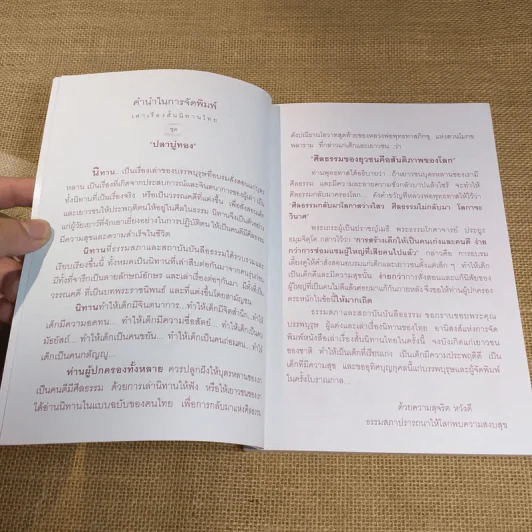 คำนำในการจัดพิมพ์
เล่าเรื่องสั้นนิทานไทย
ชุด
"ปลาบู่ทอง"
นิทาน. เป็นเรื่องเล่าของบรรพบุรุษที่อบรมสั่งสอนแก่บุตร
หลาน เป็นเรื่องที่เกิดจากประสบการณ์และจินตนาการของผู้เล่า
ทั้งนิทานที่เป็นเรื่องจริง หรือเป็นวรรณคดีที่แต่งขึ้น เพื่อ
และเยาวชนให้ประพฤติตนให้อยู่ในศีลในธรรม นิทานจึงเป็น
แก่ผู้วัยเยาว์ที่จักเอาเยี่ยงอย่างในการปฏิบัติตน ให้เป็นคนดีมีศีลธรรม
มีความสุขและความสำเร็จในชีวิต
นิทานที่ธรรมสภาและสถาบันบันลือธรรมได้รวบรวมและ
เรียบเรียงขึ้นนี้ ทั้งหมดเป็นนิทานที่เล่าสืบต่อกันมาจากคน
มีทั้งที่จารึกเป็นลายลักษณ์อักษร และเล่าเรื่องต่อๆกันมา
วรรณคดี ที่เป็นบทพระราชนิพนธ์ และที่แต่งขึ้นโดยสามัญชน
นิทานทำให้เด็กมีจินตนาการ... ทำให้เด็กมีจิตสำนึก... ทำให้
เด็กมีความอดทน... ทำให้เด็กมีความซื่อสัตย์... ทำให้เด็กเป็นคน
มัธยัสถ์... ทำให้เด็กเป็นคนขยัน... ทำให้เด็กเป็นคนอ่อนน้อม... ทำให้
เด็กเป็นคนกตัญญู...
ท่านผู้ปกครองทั้งหลาย ควรปลูกฝังให้บุตรหลานของเรา
เป็นคนดีมีศีลธรรม ด้วยการเล่านิทานให้ฟัง หรือให้เยาวชนของเรา
ได้อ่านนิทานในแบบฉบับของคนไทย เพื่อการกลับมาแห่งศีลธรรม
ดังปณิธานโอวาทสุดท้ายของหลวงพ่อพุทธทาสภิกขุ แห่งสวนโมกข
พลาราม ที่กล่าวแก่เด็กและเยาวชน ว่า
"ศีลธรรมของยุวชนคือสันติภาพของโลก"
ท่านพุทธทาสได้อธิบายว่า ถ้าเยาวชนบุตรหลานของเรามี
ศีลธรรม และมีความละอายความชั่วกลัวบาปแล้วไซร้ จะทำให้
ศีลธรรมกลับมาครองโลก... ดังคำขวัญที่หลวงพ่อพุทธทาสให้ไว้ว่า
"ศีลธรรมกลับมาโลกาสว่างไสว ศีลธรรมไม่กลับมา โลกาจะ
วินาศ"
พระเถระผู้เป็นปราชญ์เมธี พระธรรมโกศาจารย์ ประยูร
ธมฺมจิตฺโต กล่าวไว้ว่า "การสร้างเด็กให้เป็นคนเก่งและคนดี ง่าย
กว่าการซ่อมแซมผู้ใหญ่ที่เสียคนไปแล้ว" กล่าวคือ การอบรม
เลี้ยงดูให้คำสั่งสอนอบรมแก่เด็กและเยาวชนตั้งแต่เล็ก ๆ ทำให้เด็ก
เป็นเด็กดีและมีความสุขนั้น ง่ายกว่าการสั่งสอนและแก้นิสัยของ
ผู้ใหญ่ที่เป็นคนไม่ดีแต่ค่อยมาแก้กันภายหลัง จึงขอให้ท่านผู้ปกครอง
ตระหนักในข้อนี้ให้มากเถิด
ธรรมสภาและสถาบันบันลือธรรม ขอกราบขอบพระคุณ
บรรพบุรุษ ผู้แต่งและเล่าเรื่องนิทานของไทย อานิสงส์แห่งการจัด
พิมพ์หนังสือเล่าเรื่องสั้นนิทานไทยในครั้งนี้ จงบังเกิดแก่เยาวชน
ของชาติ ทำให้เป็นเด็กที่เรียนเก่ง เป็นเด็กมีความประพฤติดี เป็น
เด็กที่มีความสุข และขออุทิศบุญกุศลนี้แก่บรรพบุรุษและผู้จัดพิมพ์
ในครั้งโบราณกาล...
ด้วยความสุจริต หวังดี
ธรรมสภาปรารถนาให้โลกพบความสงบสุข